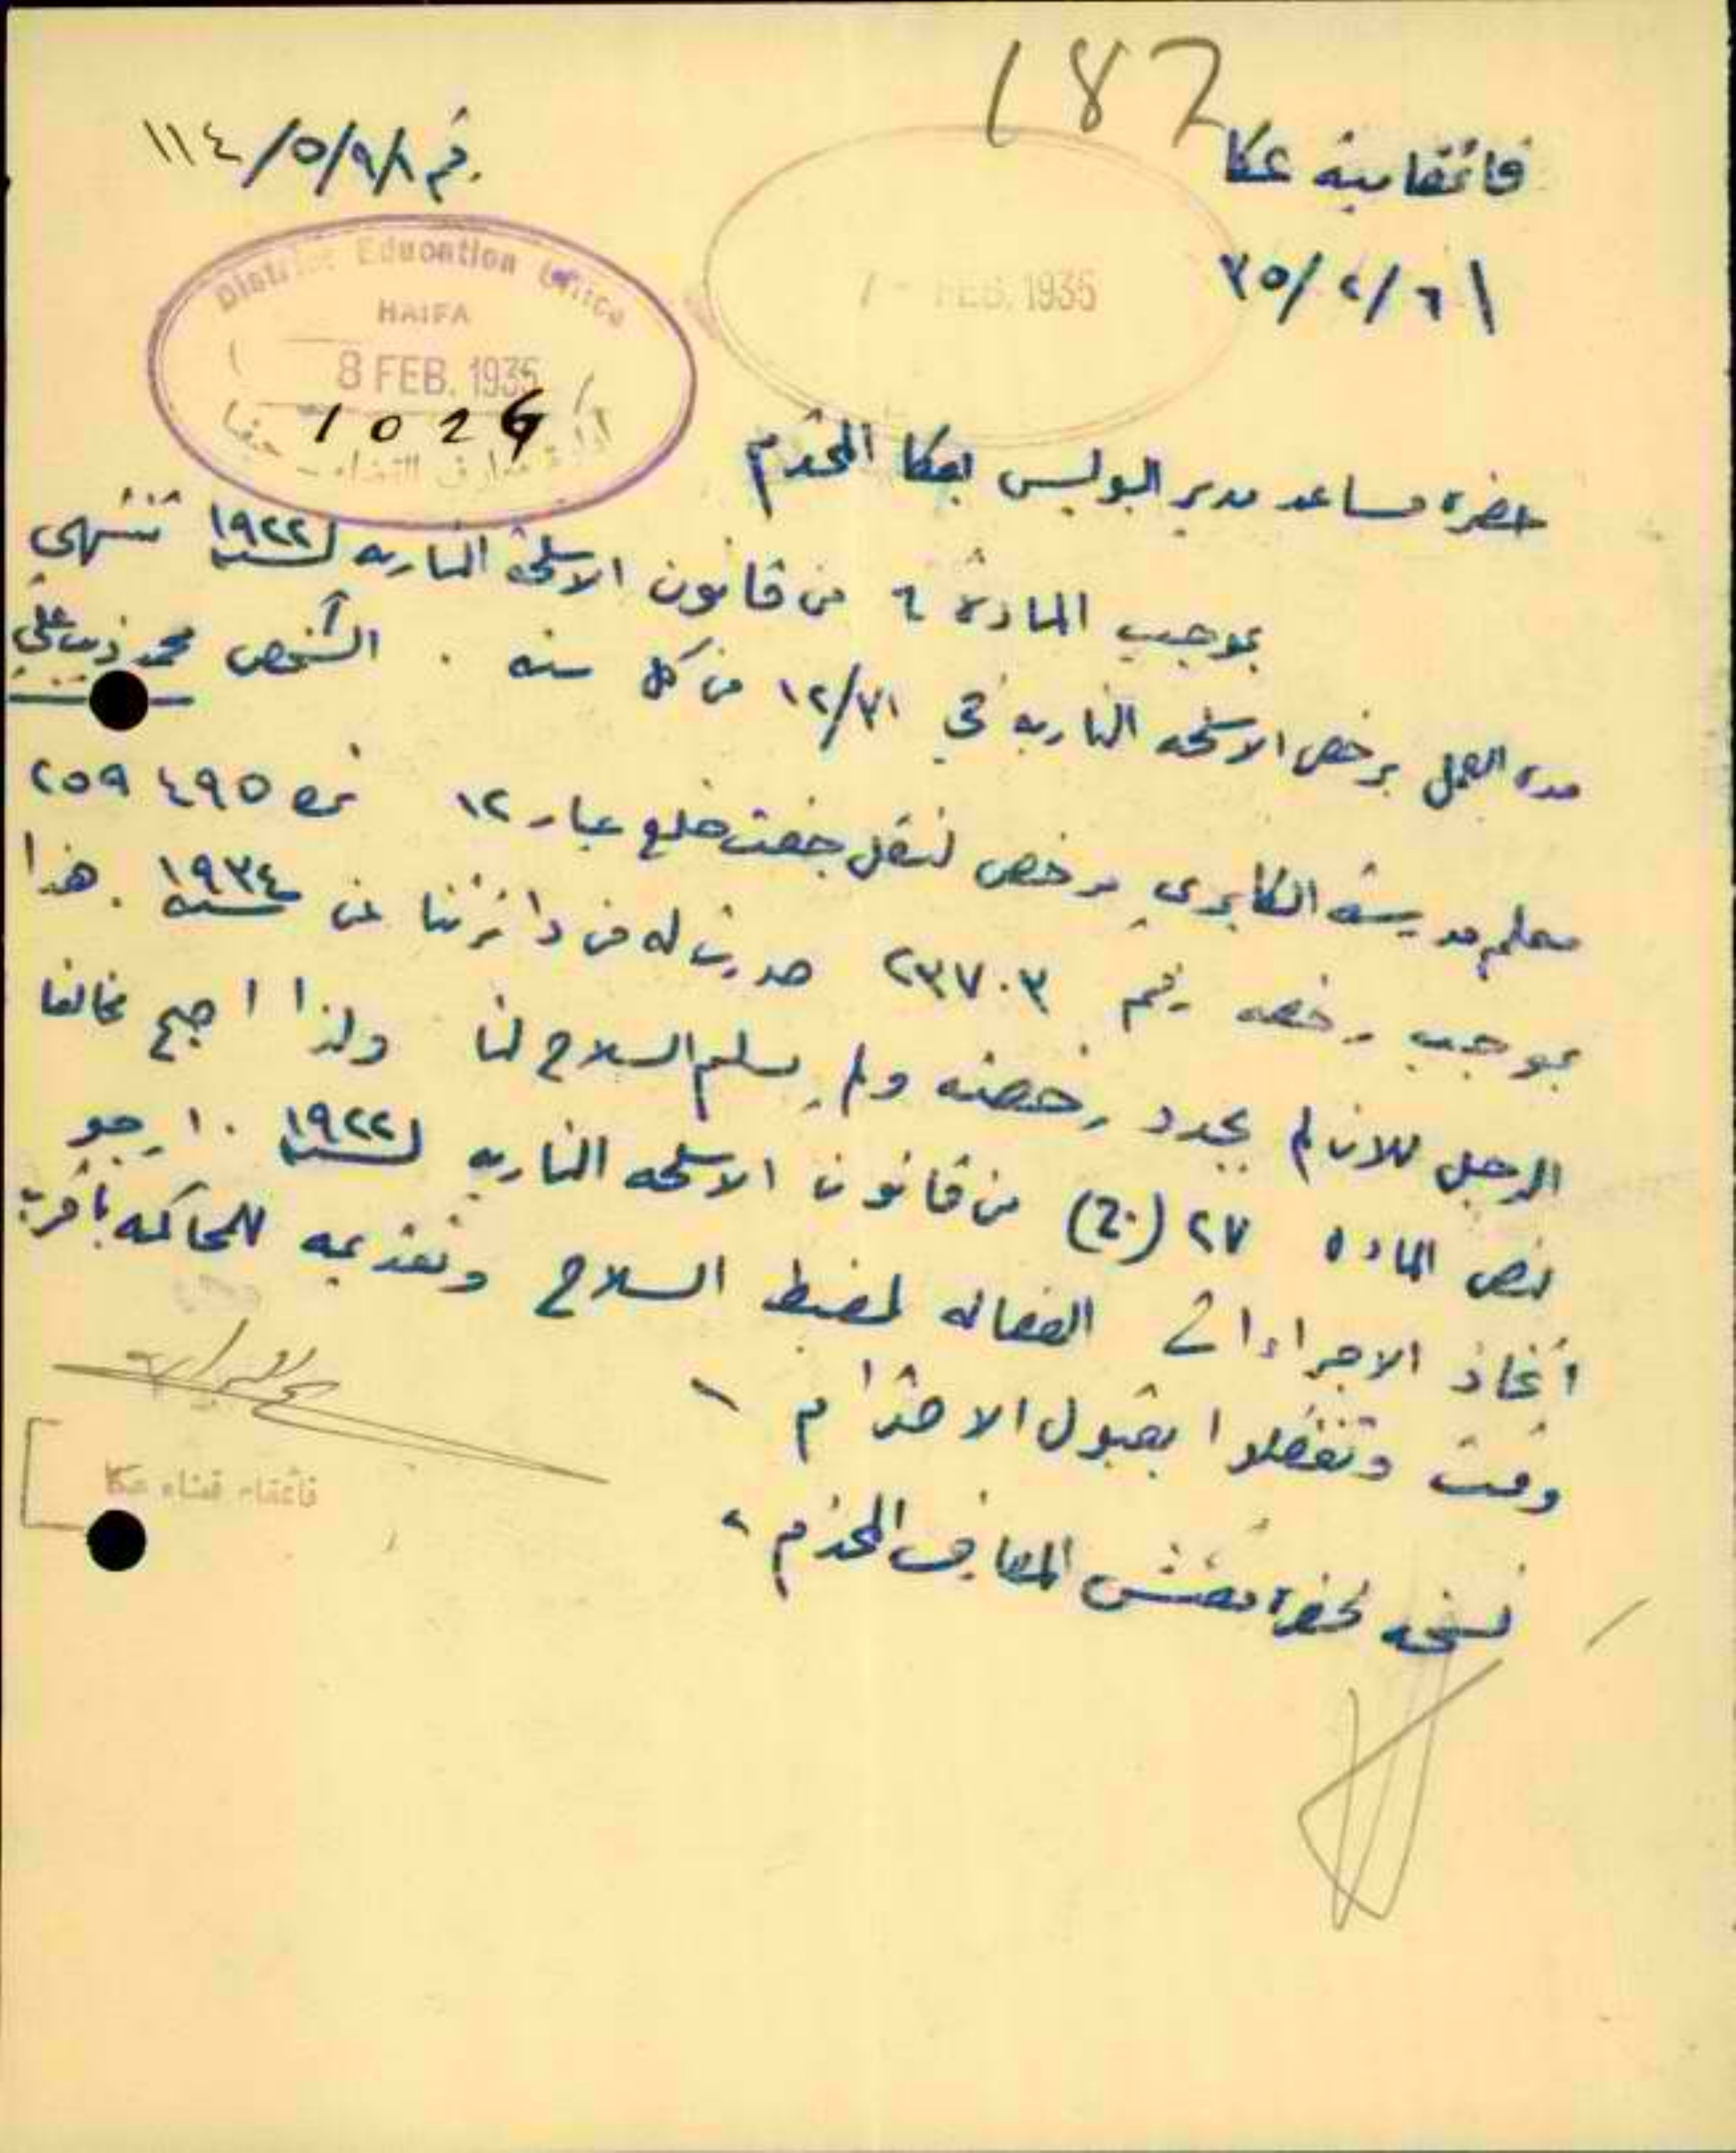 187
قائمقامية عكا
رقم ١١٤/٥/٩/٨
٣٥/٢/٦
District Education Office
HAIFA
8 FEB. 1935
1026
ادارة معارف القضاء - حيفا
7 - FEB. 1935
حضرة مساعد مدير البوليس بعكا المحترم
بموجب المادة ٦ من قانون الاسلحة الناريه لسنة ١٩٢٢ تنتهي
مدة العمل برخص الاسلحه الناريه في ١٢/٣١ من كل سنه . الشخص محمد ذيب علي
معلم مدرسة الكابري مرخص لنقل جفت خلع عيار ١٢ نمرة ٢٥٩٤٩٥
بموجب رخصه رقم ٢٣٧٠٣ صدرت له من دائرتنا عن سنة ١٩٣٤ . هذا
الرجل للان لم يجدد رخصته ولم يسلم السلاح لنا ولذا اصبح مخالفا
لنص الماده ٢٧ (ج) من قانون الاسلحه الناريه لسنة ١٩٢٢ . ارجو
اتخاذ الاجراءات الفعاله لضبط السلاح وتقديمه للمحاكمه بأقرب
وقت وتفضلوا بقبول الاحترام
قائمقام قضاء عكا
نسخه لحضرة مفتش المعارف المحترم ،